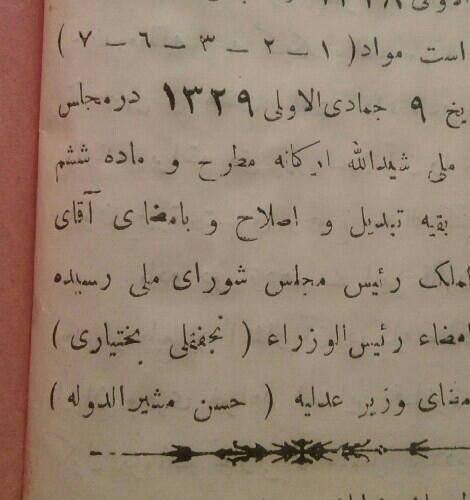 است مواد ( ۱ – ۲ – ۳ – ۶ – ۷ )
یخ ۹ جمادی‌الاولی ۱۳۲۹ در مجلس
ملی شیدالله ارکانه مطرح و ماده ششم
بقیه تبدیل و اصلاح و بامضای آقای
الملک رئیس مجلس شورای ملی رسیده
امضاء رئیس‌الوزراء ( نجفقلی بختیاری )
مضای وزیر عدلیه ( حسن مشیرالدوله )